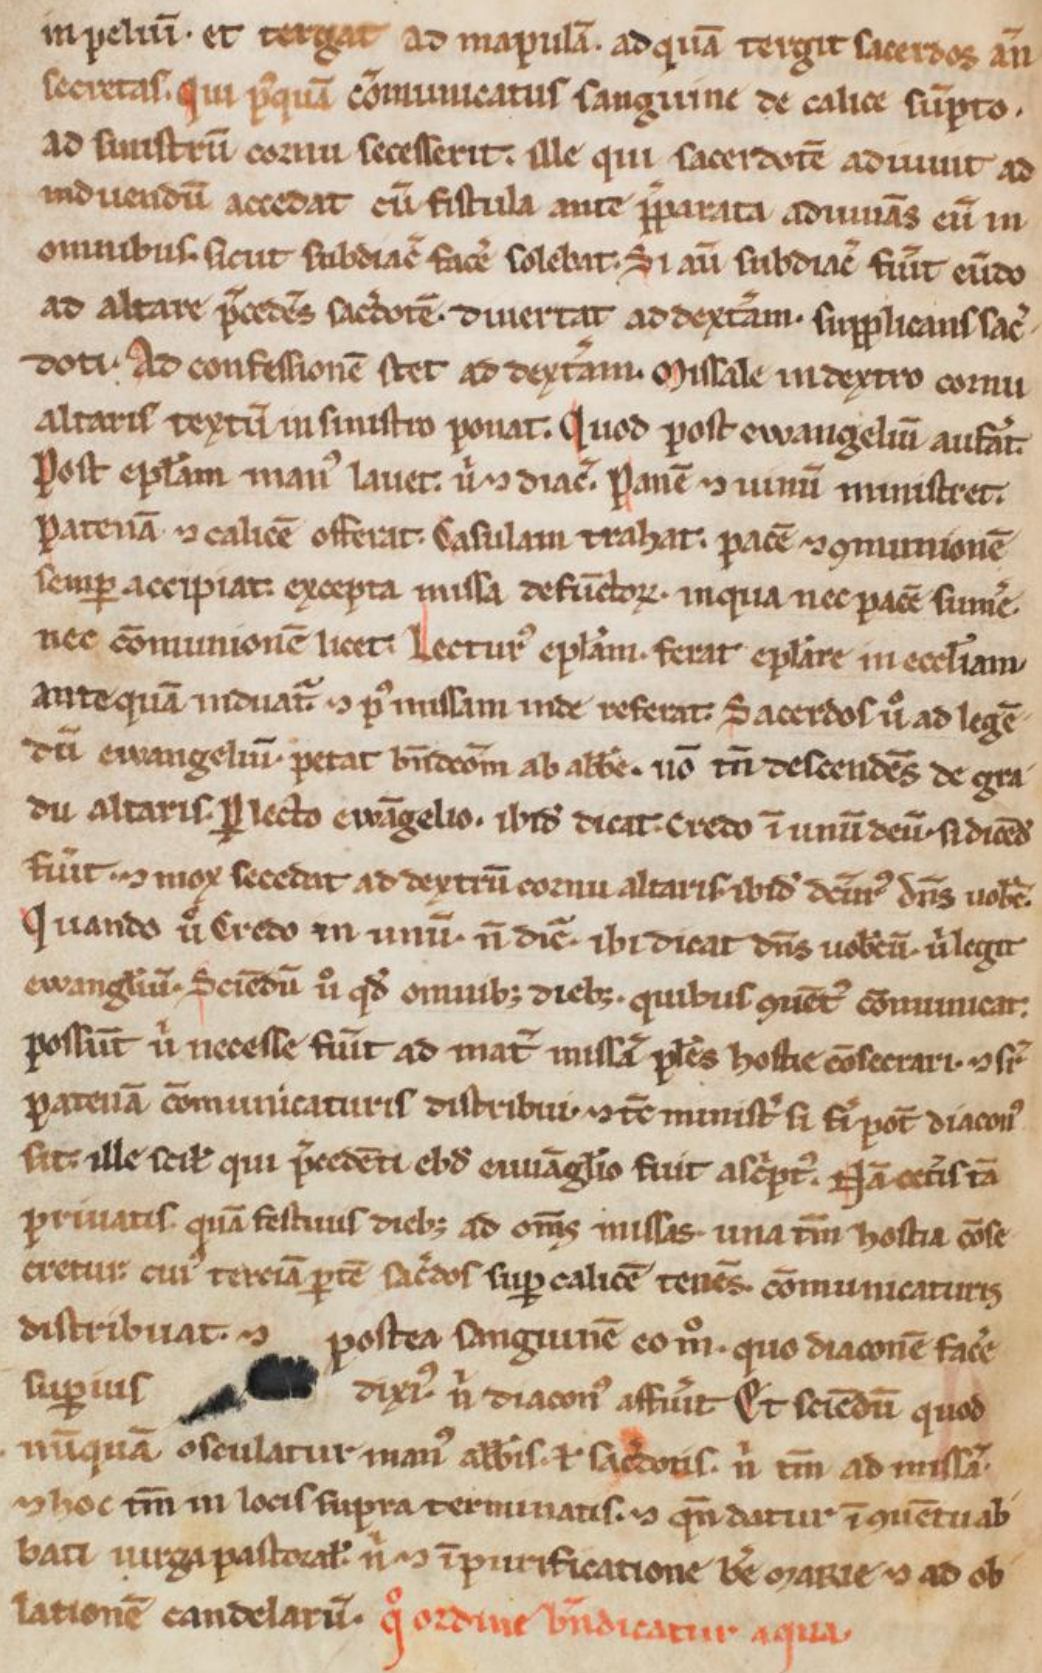 in peluī· et tergat ad mapulā· ad quā tergit sacerdos añ
secretas. Qui p̾quā cōmunicatus sanguine de calice sūpto·
ad sinistrū cornu secesserit· ille qui sacerdotē adiuuit ad
induendū accedat cū fistula ante p̄parata adiuuās eū in
omnibus· sicut subdiac̄ facē solebat· Si aū subdiac̄ fuīt eūdo
ad altare p̄cedēs sac̾dotē· diuertat ad dextᵃm· supplicans sac̾
doti· Ad confessionē stet ad dextᵃm. Missale in dextro cornu
altaris textū in sinistro ponat. Quod post ewangeliū aufāt·
Post ep̄łam man᾽ lauet· ů ⁊ diac̄. Panē ⁊ uinū ministret·
Patenā ⁊ calicē offerat· Casulam trahat· pacē ⁊ ꝯmunionē
semꝑ accipiat· excepta missa defūctoꝝ· in qua nec pacē sumē·
nec cōmunionē licet· Lectur᾽ ep̄łam· ferat ep̄łare in eccłiam
antequā induat᾽· ⁊ p᾽ missam inde referat· Sacerdos ů ad legē
dū ewangeliū· petat bn̄dcōm ab abb̄e· nō tn̄ descendēs de gra
du altaris· Plecto ewāgelio· ibid̄ dicat· Credo ī unū deū· si dicēd̄
fuīt· ⁊ mox secedat ad dextrū cornu altaris· ibid̄ dctur᾽ dn̄s uob̄c·
Quando ů Credo in unū· n̄ dic̄· ibi dicat dn̄s uob̄cū· u̓ legit
ewangłiū· Sciēdū ů qd̄ omnibꝫ diebꝫ· quibus ꝯuēt᾽ cōmunicar·
possūt u̓ necesse fuīt ad mat᾽ missā pl̄es hostie cōsecrari· ⁊ sr̄
patenā cōmunicaturis distribui· ⁊ tc̄ minist᾽ si fi̓ pot̄ diacon᾽
sit· ille scił qui p̄cedēti ebd̄ euuāgłio fuit asc̓pt᾽. Nā cet̓is tā
priuatis quā festiuis diebꝫ ad om̄s missas· una tm̄ hostia cōse
cretur· cui᾽ terciā ꝑtē sac̾dos suꝑ calicē tenēs· cōmunicaturis
distribuat· ⁊ postea sanguinē eo mͦ· quo diaconē facē
suꝑius dixi᾽· n̓ diacon᾽ affuīt Et sciēdū quod
nūquā osculatur man᾽ abb̄is· ł sac̾dotis· n̓ tm̄ ad missā·
⁊ hoc tm̄ in locis supra terminatis· ⁊ qn̄ datur ī ꝯuētu ab
bati uirga pastoral̄· n̓ ⁊ ī purificatione bē marie ⁊ ad ob
lationē candelarū· qͦ ordine bn̄dicatur aqua·